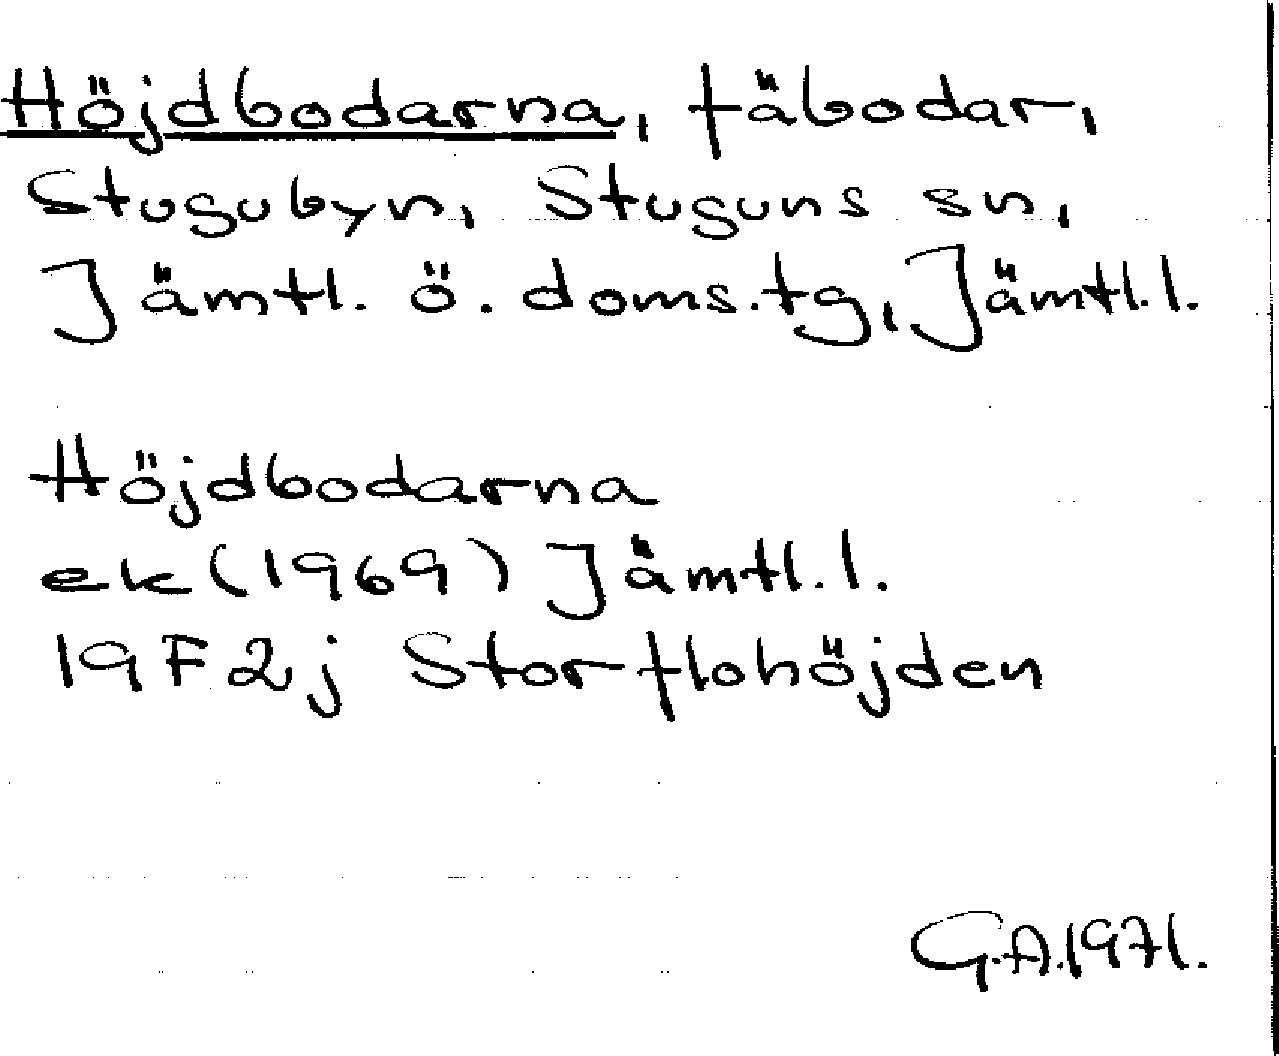 Höjdbodarna, fäbodar,
Stugubyn, Stuguns sn,
Jämtl. ö. doms.tg, Jämtl.l.
Höjdbodarna
ek (1969) Jämtl.l.
19F2j Storflohöjden
G.A.1971.